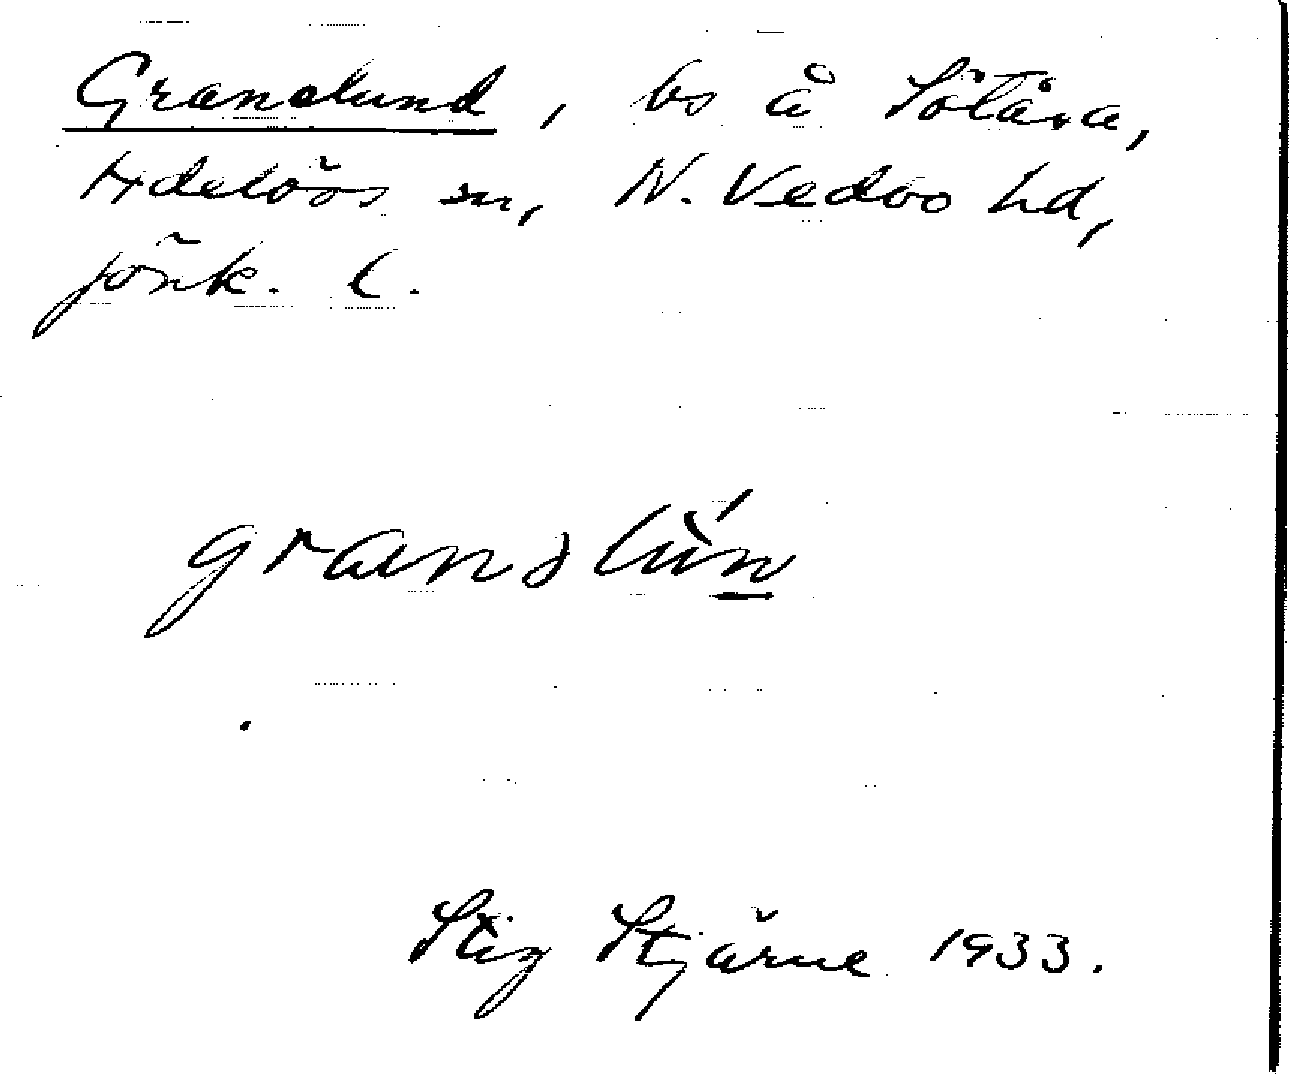 Granslund, bs å Sötåsa,
Adelövs sn, N. Vedbo hd,
Jönk. l.
granslùn
Stig Stjärne 1933.